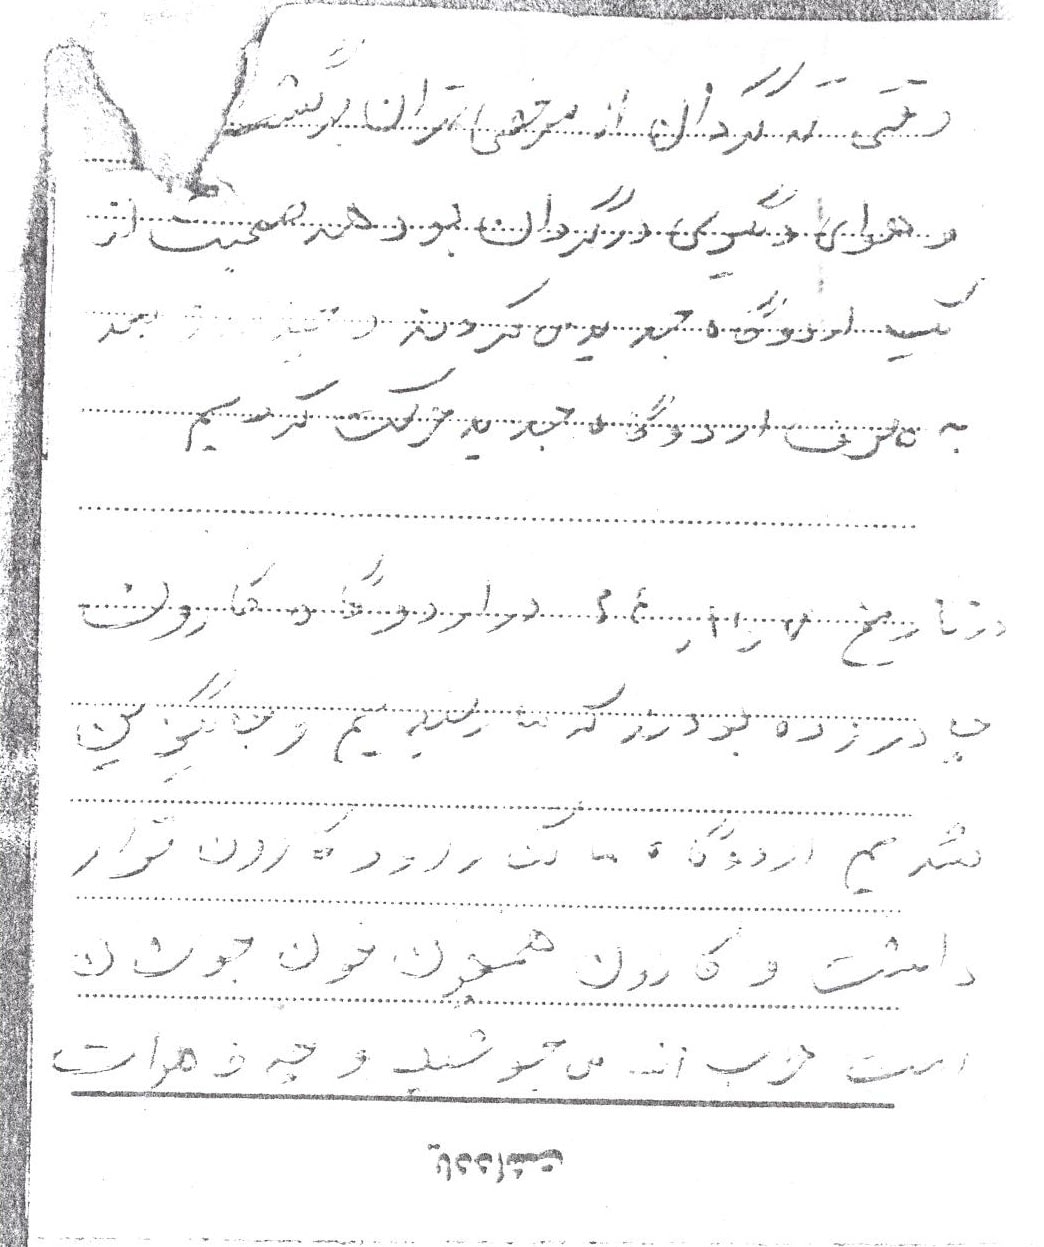 وقتی که گردان از مرخصی تهران برگشت
و هوای دیگری در گردان بود همه صحبت از
یک اردوگاه جدید می کردند و بعد
به طرف اردوگاه جدید حرکت کردیم
در تاریخ در اردوگاه کارون
چادر زده بودند که ما رسیدیم و جایگزین
شدیم اردوگاه ما کنار رود کارون قرار
داشت و کارون همچون خون جوشان
امت حزب الله می جوشید و چه
یادداشت